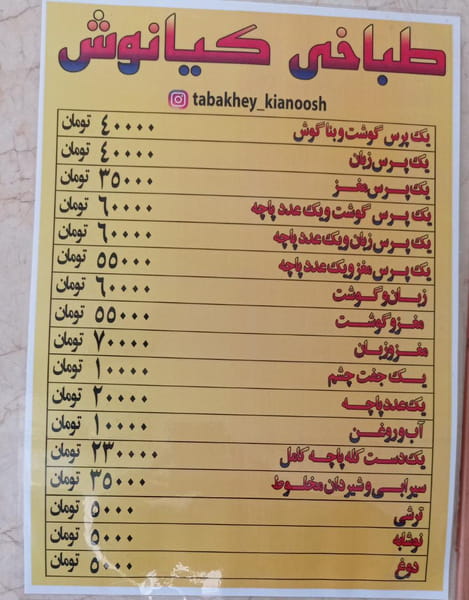 طباخی کیانوش
tabakhey_kianoosh
یک پرس گوشت و بناگوش ۴۰۰۰۰ تومان
یک پرس زبان ۴۰۰۰۰ تومان
یک پرس مغز ۳۵۰۰۰ تومان
یک پرس گوشت و یک عدد پاچه ۶۰۰۰۰ تومان
یک پرس زبان و یک عدد پاچه ۶۰۰۰۰ تومان
یک پرس مغز و یک عدد پاچه ۵۵۰۰۰ تومان
زبان و گوشت ۶۰۰۰۰ تومان
مغز و گوشت ۵۵۰۰۰ تومان
مغز و زبان ۷۰۰۰۰ تومان
یک جفت چشم ۱۰۰۰۰ تومان
یک عدد پاچه ۲۰۰۰۰ تومان
آب و روغن ۱۰۰۰۰ تومان
یک دست کله پاچه کامل ۲۳۰۰۰۰ تومان
سیرابی و شیردان مخلوط ۳۵۰۰۰ تومان
ترشی ۵۰۰۰ تومان
نوشابه ۵۰۰۰ تومان
دوغ ۵۰۰۰ تومان